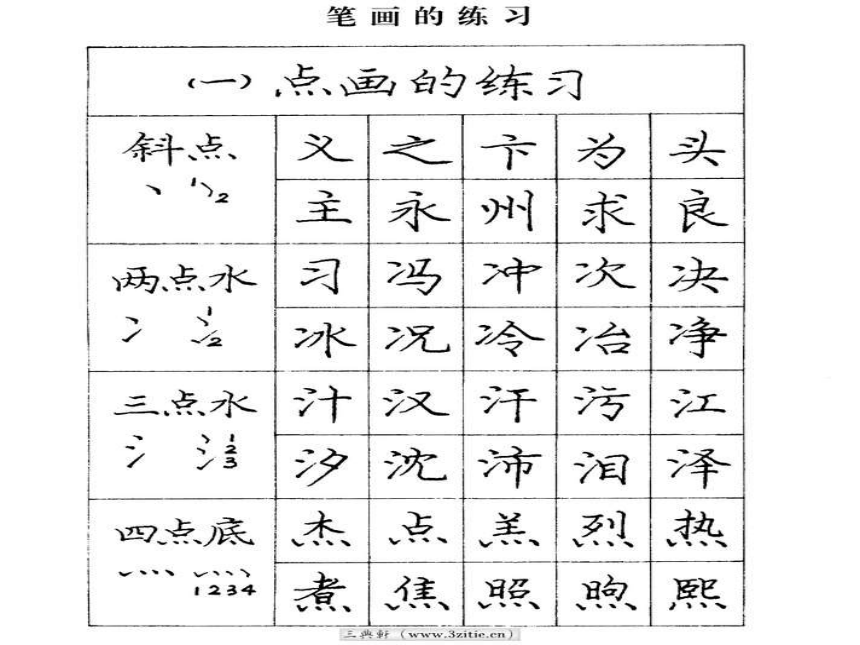 笔画的练习
(一)点画的练习
斜点 义 之 卞 为 头
丶 1 2 主 永 州 求 良
两点水 习 冯 冲 次 决
冫 1 2 冰 况 冷 冶 净
三点水 汁 汉 汗 污 江
氵 1 2 3 汐 沈 沛 泪 泽
四点底 杰 点 羔 烈 热
灬 1 2 3 4 煮 焦 照 煦 熙
三典轩(www.3zitie.cn)